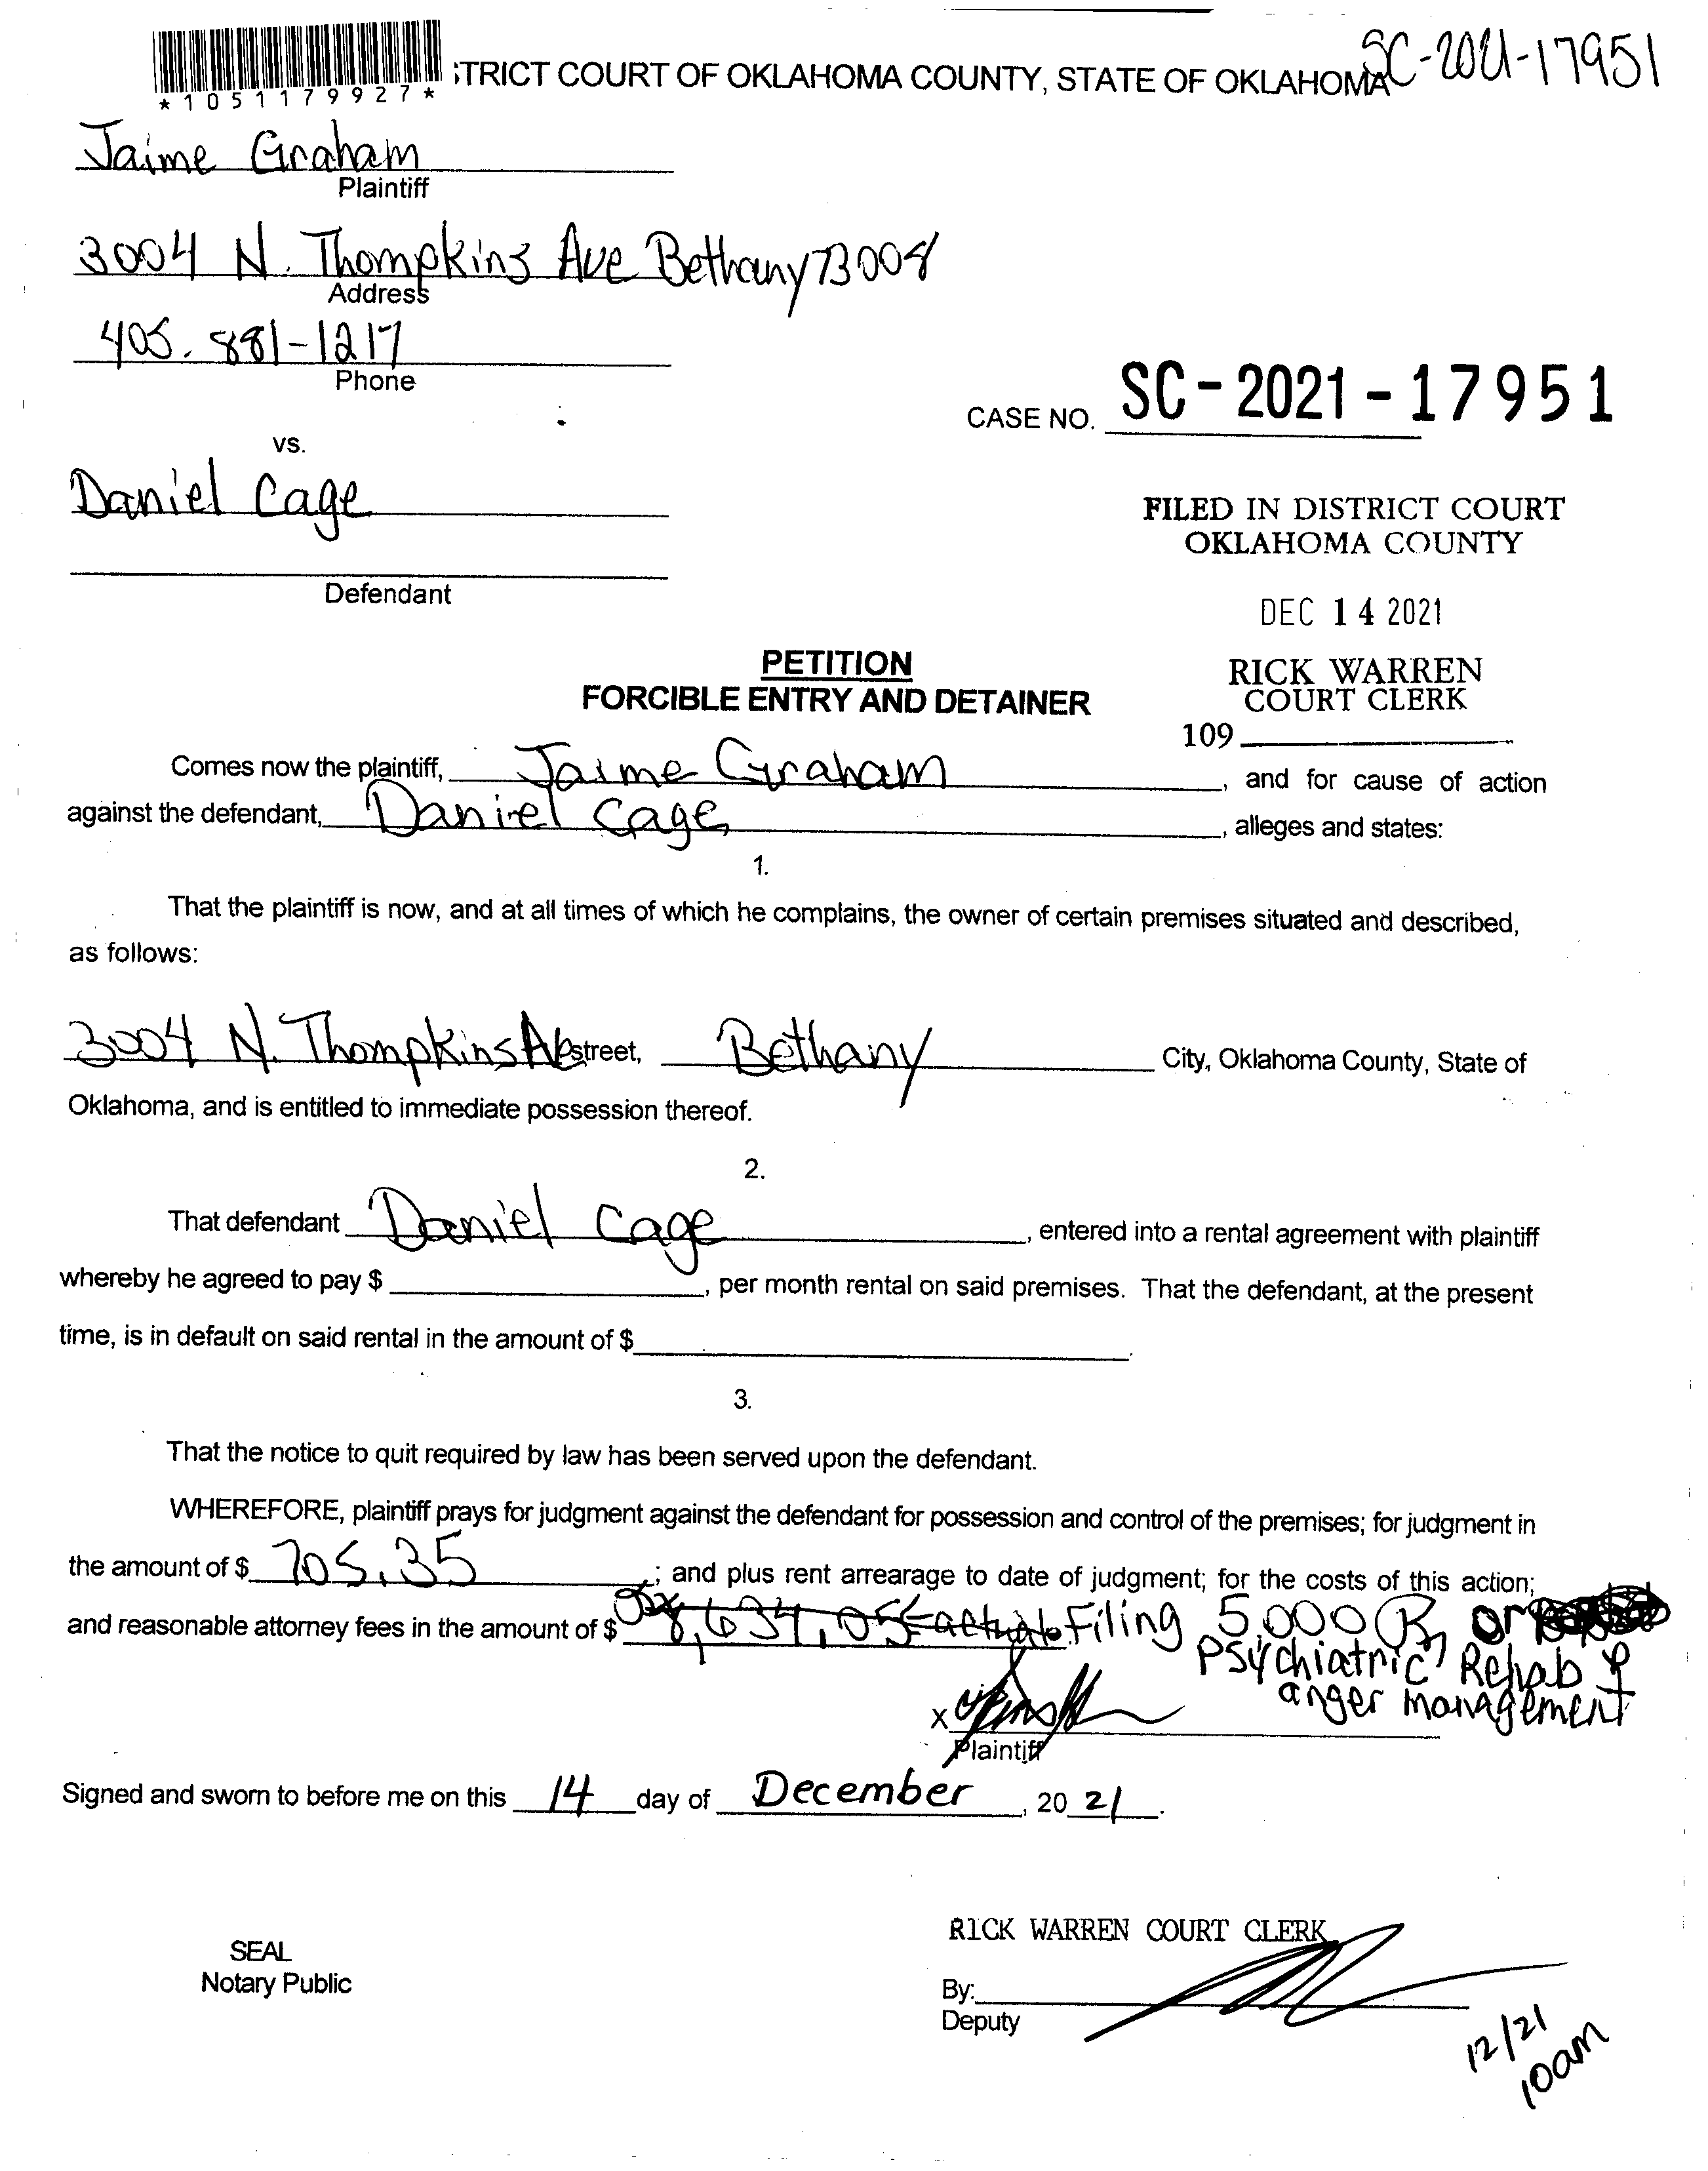 *1051179927*
STRICT COURT OF OKLAHOMA COUNTY, STATE OF OKLAHOMA
SC-2021-17951
Jaime Graham
Plaintiff
3004 N. Thompkins Ave Bethany 73008
Address
405. 881-1217
Phone
CASE NO. SC-2021-17951
vs.
Daniel Cage
FILED IN DISTRICT COURT
OKLAHOMA COUNTY
Defendant
DEC 14 2021
PETITION
FORCIBLE ENTRY AND DETAINER
RICK WARREN
COURT CLERK
109
Comes now the plaintiff, Jaime Graham, and for cause of action
against the defendant, Daniel Cage, alleges and states:
1.
That the plaintiff is now, and at all times of which he complains, the owner of certain premises situated and described,
as follows:
3004 N. Thompkins Ave street, Bethany City, Oklahoma County, State of
Oklahoma, and is entitled to immediate possession thereof.
2.
That defendant Daniel Cage, entered into a rental agreement with plaintiff
whereby he agreed to pay $, per month rental on said premises. That the defendant, at the present
time, is in default on said rental in the amount of $.
3.
That the notice to quit required by law has been served upon the defendant.
WHEREFORE, plaintiff prays for judgment against the defendant for possession and control of the premises; for judgment in
the amount of $ 705.35; and plus rent arrearage to date of judgment; for the costs of this action;
and reasonable attorney fees in the amount of $ 8,634.05 Filing 5.000 or
Psychiatric Rehab &
anger management
X
Plaintiff
Signed and sworn to before me on this 14 day of December, 20 21.
RICK WARREN COURT CLERK
SEAL
Notary Public
By:
Deputy
12/21
10am